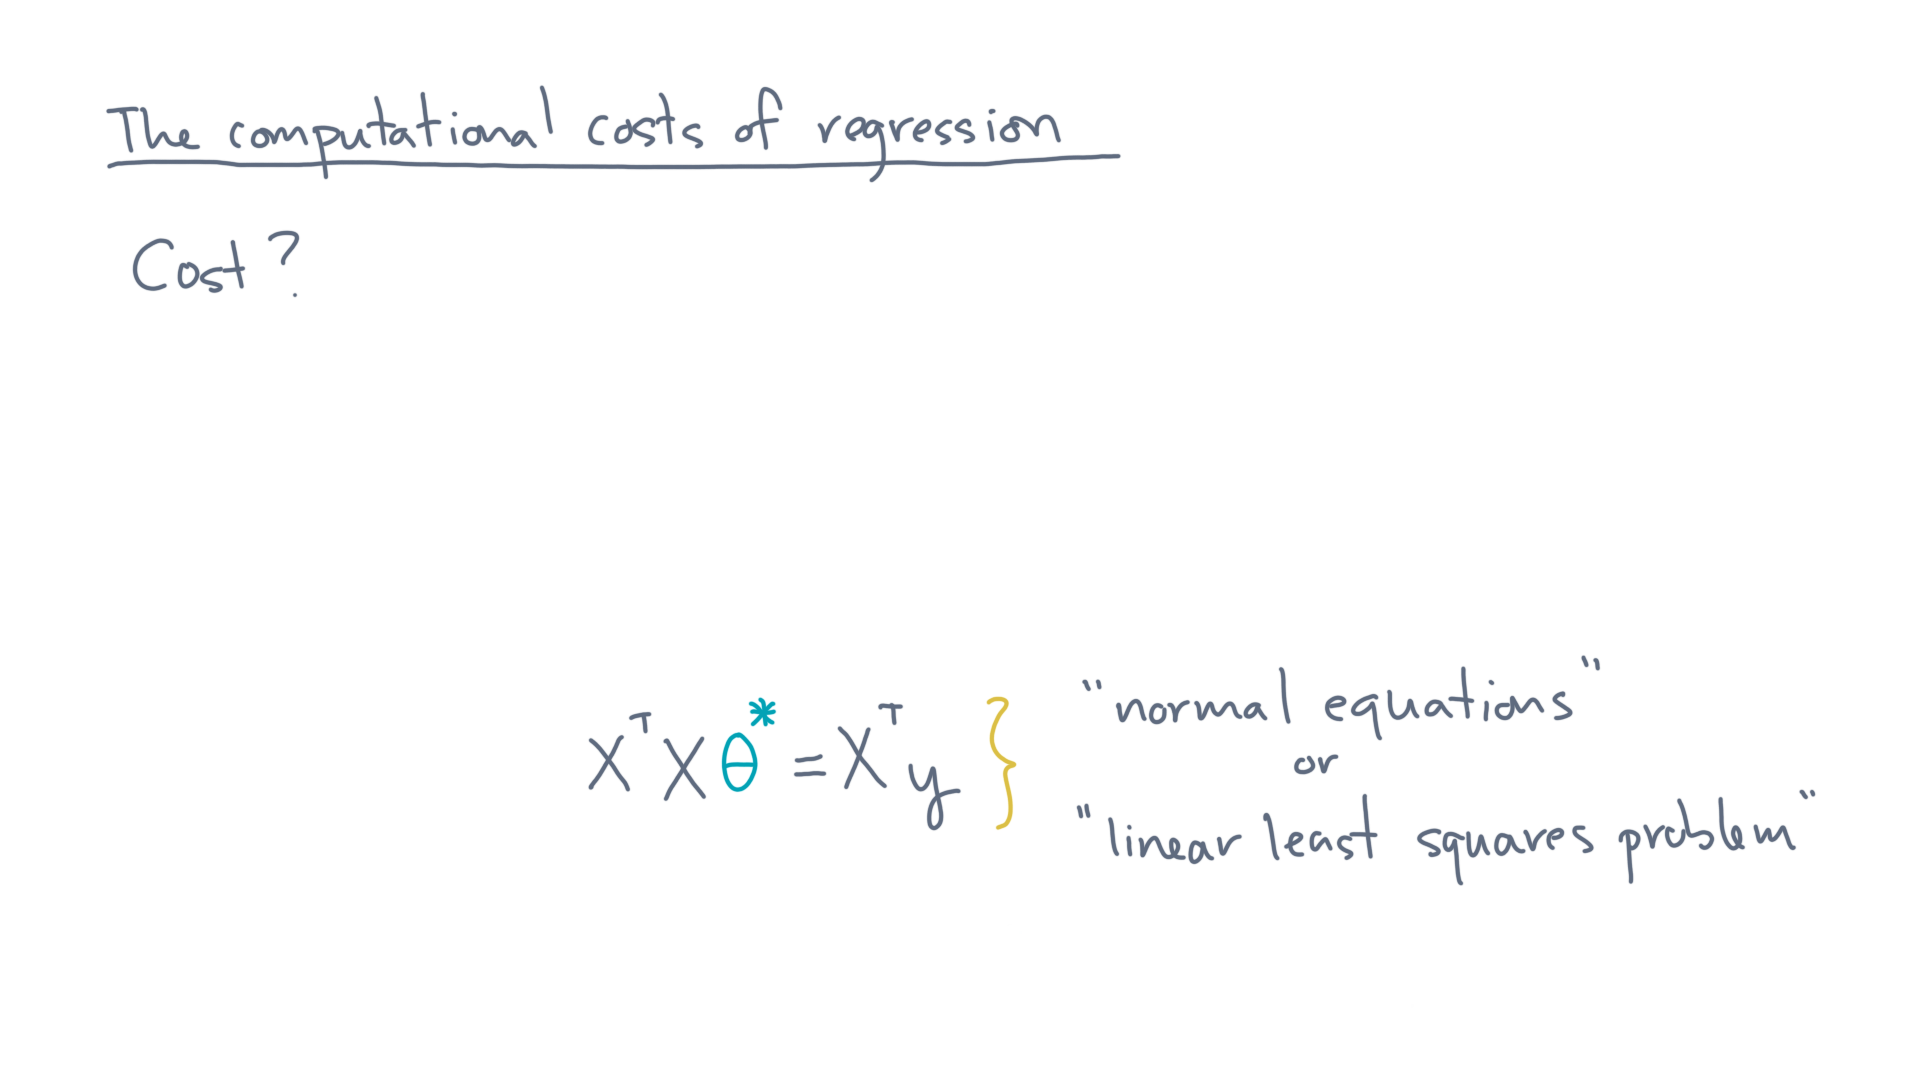 The computational costs of regression
Cost?
XᵀXθ* = Xᵀy } "normal equations"
or
"linear least squares problem"